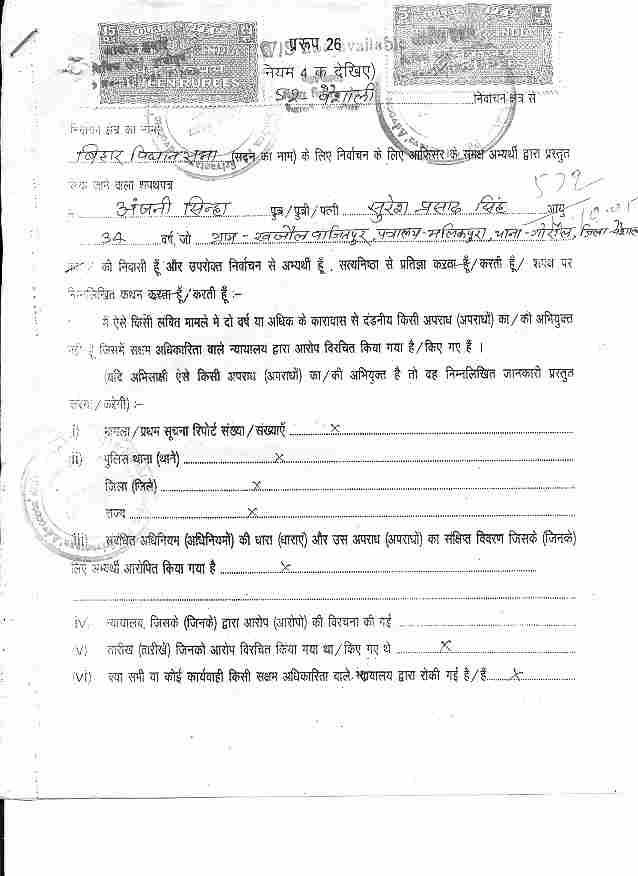 प्ररूप 26
(नियम 4 क देखिए)
वैशाली निर्वाचन क्षेत्र से
निर्वाचन क्षेत्र का नाम
बिहार विधान सभा (सदन का नाम) के लिए निर्वाचन के लिए आफिसर के समक्ष अभ्यर्थी द्वारा प्रस्तुत
किया जाने वाला शपथपत्र
572
अंजनी सिन्हा पुत्र/पुत्री/पत्नी सुरेश प्रसाद सिंह आयु
34 वर्ष, जो ग्राम - पत्रालय - मलिकपुर, थाना - गोरौल, जिला वैशाली
को निवासी हूँ और उपरोक्त निर्वाचन से अभ्यर्थी हूँ, सत्यनिष्ठा से प्रतिज्ञा करता हूँ/करती हूँ/ शपथ पर
निम्नलिखित कथन करता हूँ/करती हूँ :-
मैं ऐसे किसी लंबित मामले मे दो वर्ष या अधिक के कारावास से दंडनीय किसी अपराध (अपराधों) का/की अभियुक्त
नहीं हूँ जिसमें सक्षम अधिकारिता वाले न्यायालय द्वारा आरोप विरचित किया गया है/किए गए हैं ।
(यदि अभिसाक्षी ऐसे किसी अपराध (अपराधों) का/की अभियुक्त है तो वह निम्नलिखित जानकारी प्रस्तुत
करेगा/करेगी) :-
i) मामला/प्रथम सूचना रिपोर्ट संख्या/संख्याएँ x
ii) पुलिस थाना (थाने) x
जिला (जिले) x
राज्य x
iii) संबंधित अधिनियम (अधिनियमों) की धारा (धाराएं) और उस अपराध (अपराधों) का संक्षिप्त विवरण जिसके (जिनके)
लिए अभ्यर्थी आरोपित किया गया है x
iv. न्यायालय, जिसके (जिनके) द्वारा आरोप (आरोपो) की विरचना की गई
v) तारीख (तारीखें) जिनको आरोप विरचित किया गया था/किए गए थे x
vi) क्या सभी या कोई कार्यवाही किसी सक्षम अधिकारिता वाले न्यायालय द्वारा रोकी गई है/हैं x